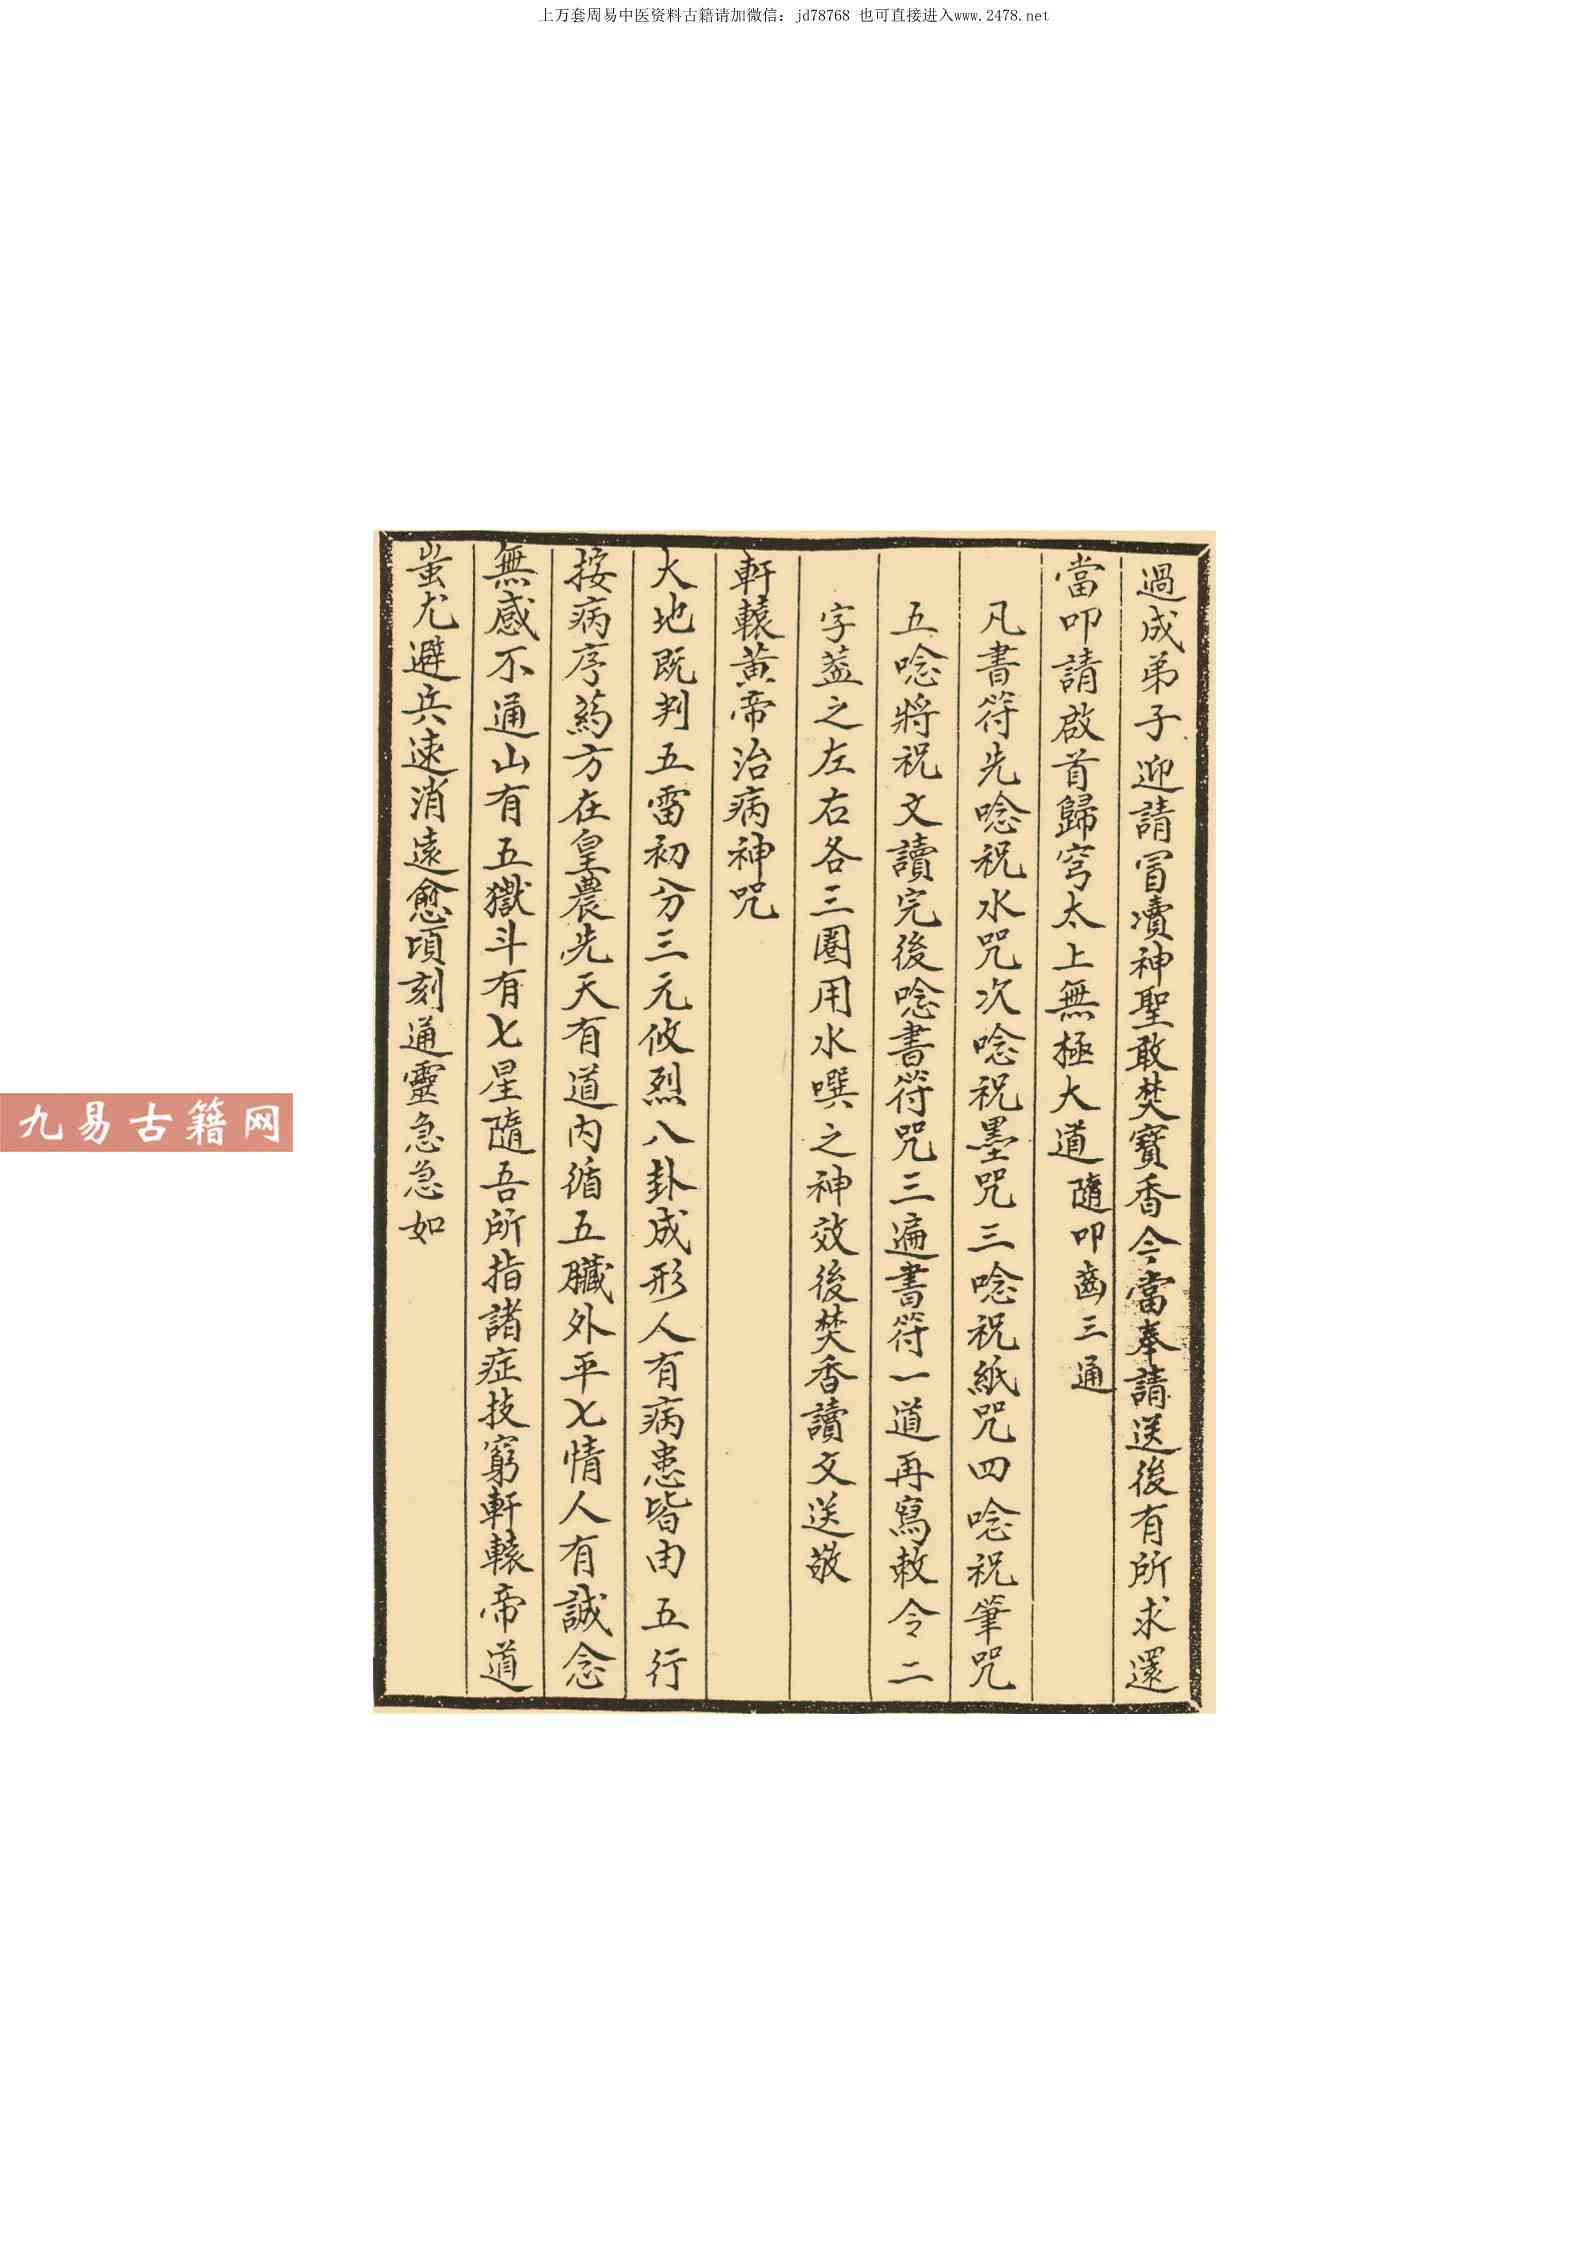 上万套周易中医资料古籍请加微信：jd78768 也可直接进入www.2478.net
過成弟子迎請冒凟神聖敢焚寶香今當奉請送後有所求還
當叩請啟首歸穹太上無極大道隨叩齒三通
凡書符先唸祝水咒次唸祝墨咒三唸祝紙咒四唸祝筆咒
五唸將祝文讀完後唸書符咒三遍書符一道再寫敕令二
字蓋之左右各三圈用水噀之神效後焚香讀文送敬
軒轅黃帝治病神咒
大地既判五雷初分三元攸烈八卦成形人有病患皆由五行
按病序药方在皇農先天有道内循五臟外平七情人有誠念
無感不通山有五獄斗有七星隨吾所指諸症技窮軒轅帝道
蚩尤避兵速消遠愈頃刻通靈急急如
九易古籍网